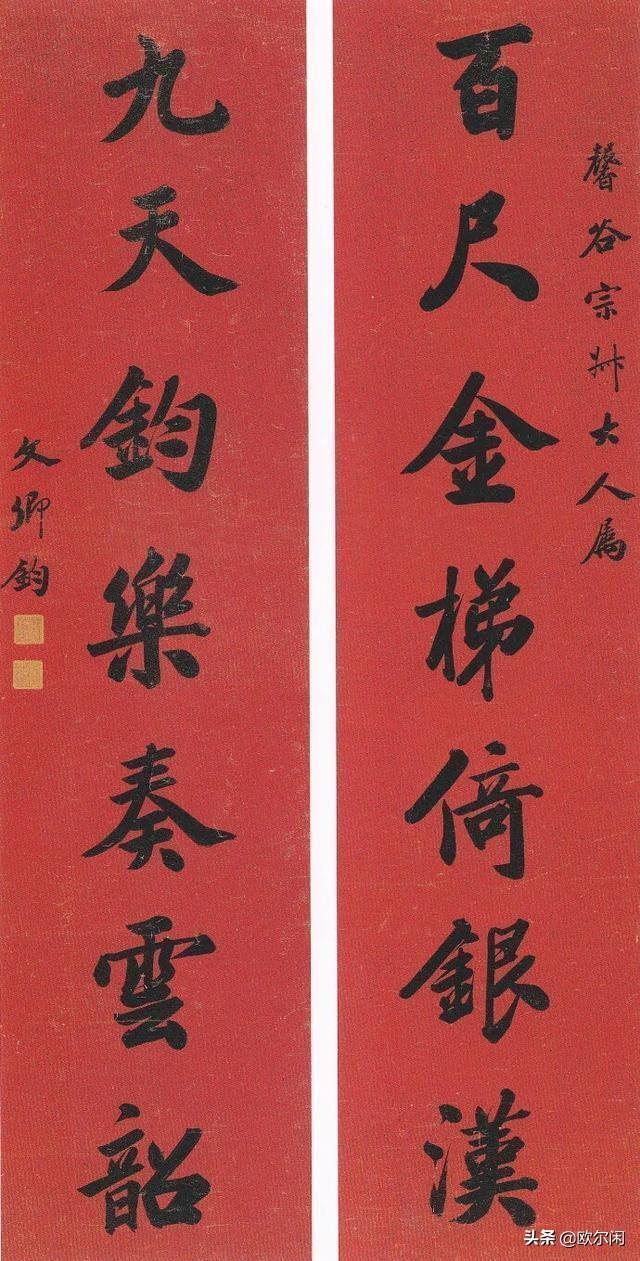 馨谷宗卅大人属
百尺金梯倚銀漢
九天鈞樂奏雲韶
文卿鈞
头条 @欧尔闲